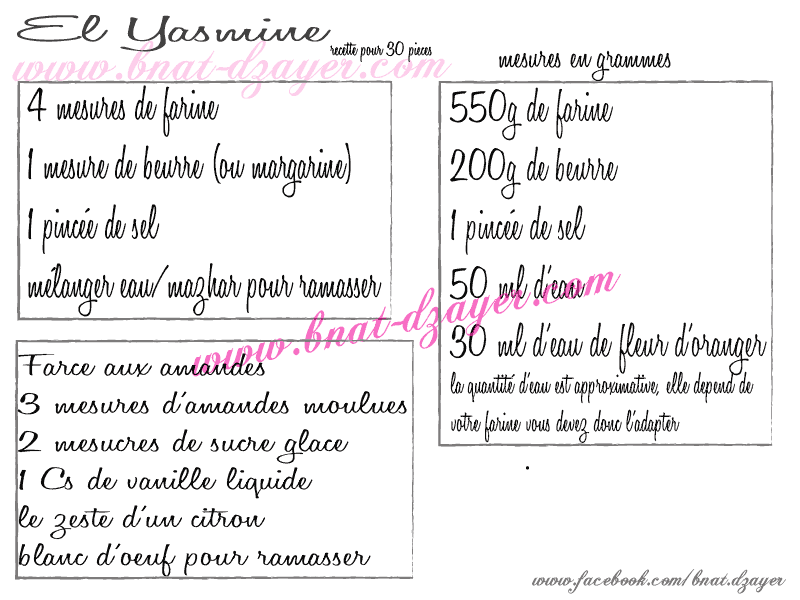 El Yasmine recette pour 30 pieces
www.bnat-dzayer.com
4 mesures de farine
1 mesure de beurre (ou margarine)
1 pincée de sel
mélanger eau/mazhar pour ramasser
mesures en grammes
550g de farine
200g de beurre
1 pincée de sel
50 ml d'eau
30 ml d'eau de fleur d'oranger
la quantité d'eau est approximative, elle depend de
votre farine vous devez donc l'adapter
www.bnat-dzayer.com
Farce aux amandes
3 mesures d'amandes moulues
2 mesucres de sucre glace
1 Cs de vanille liquide
le zeste d'un citron
blanc d'oeuf pour ramasser
www.facebook.com/bnat.dzayer